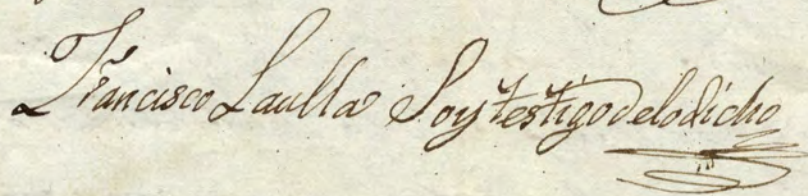 Francisco Laulla Soy testigo delodicho